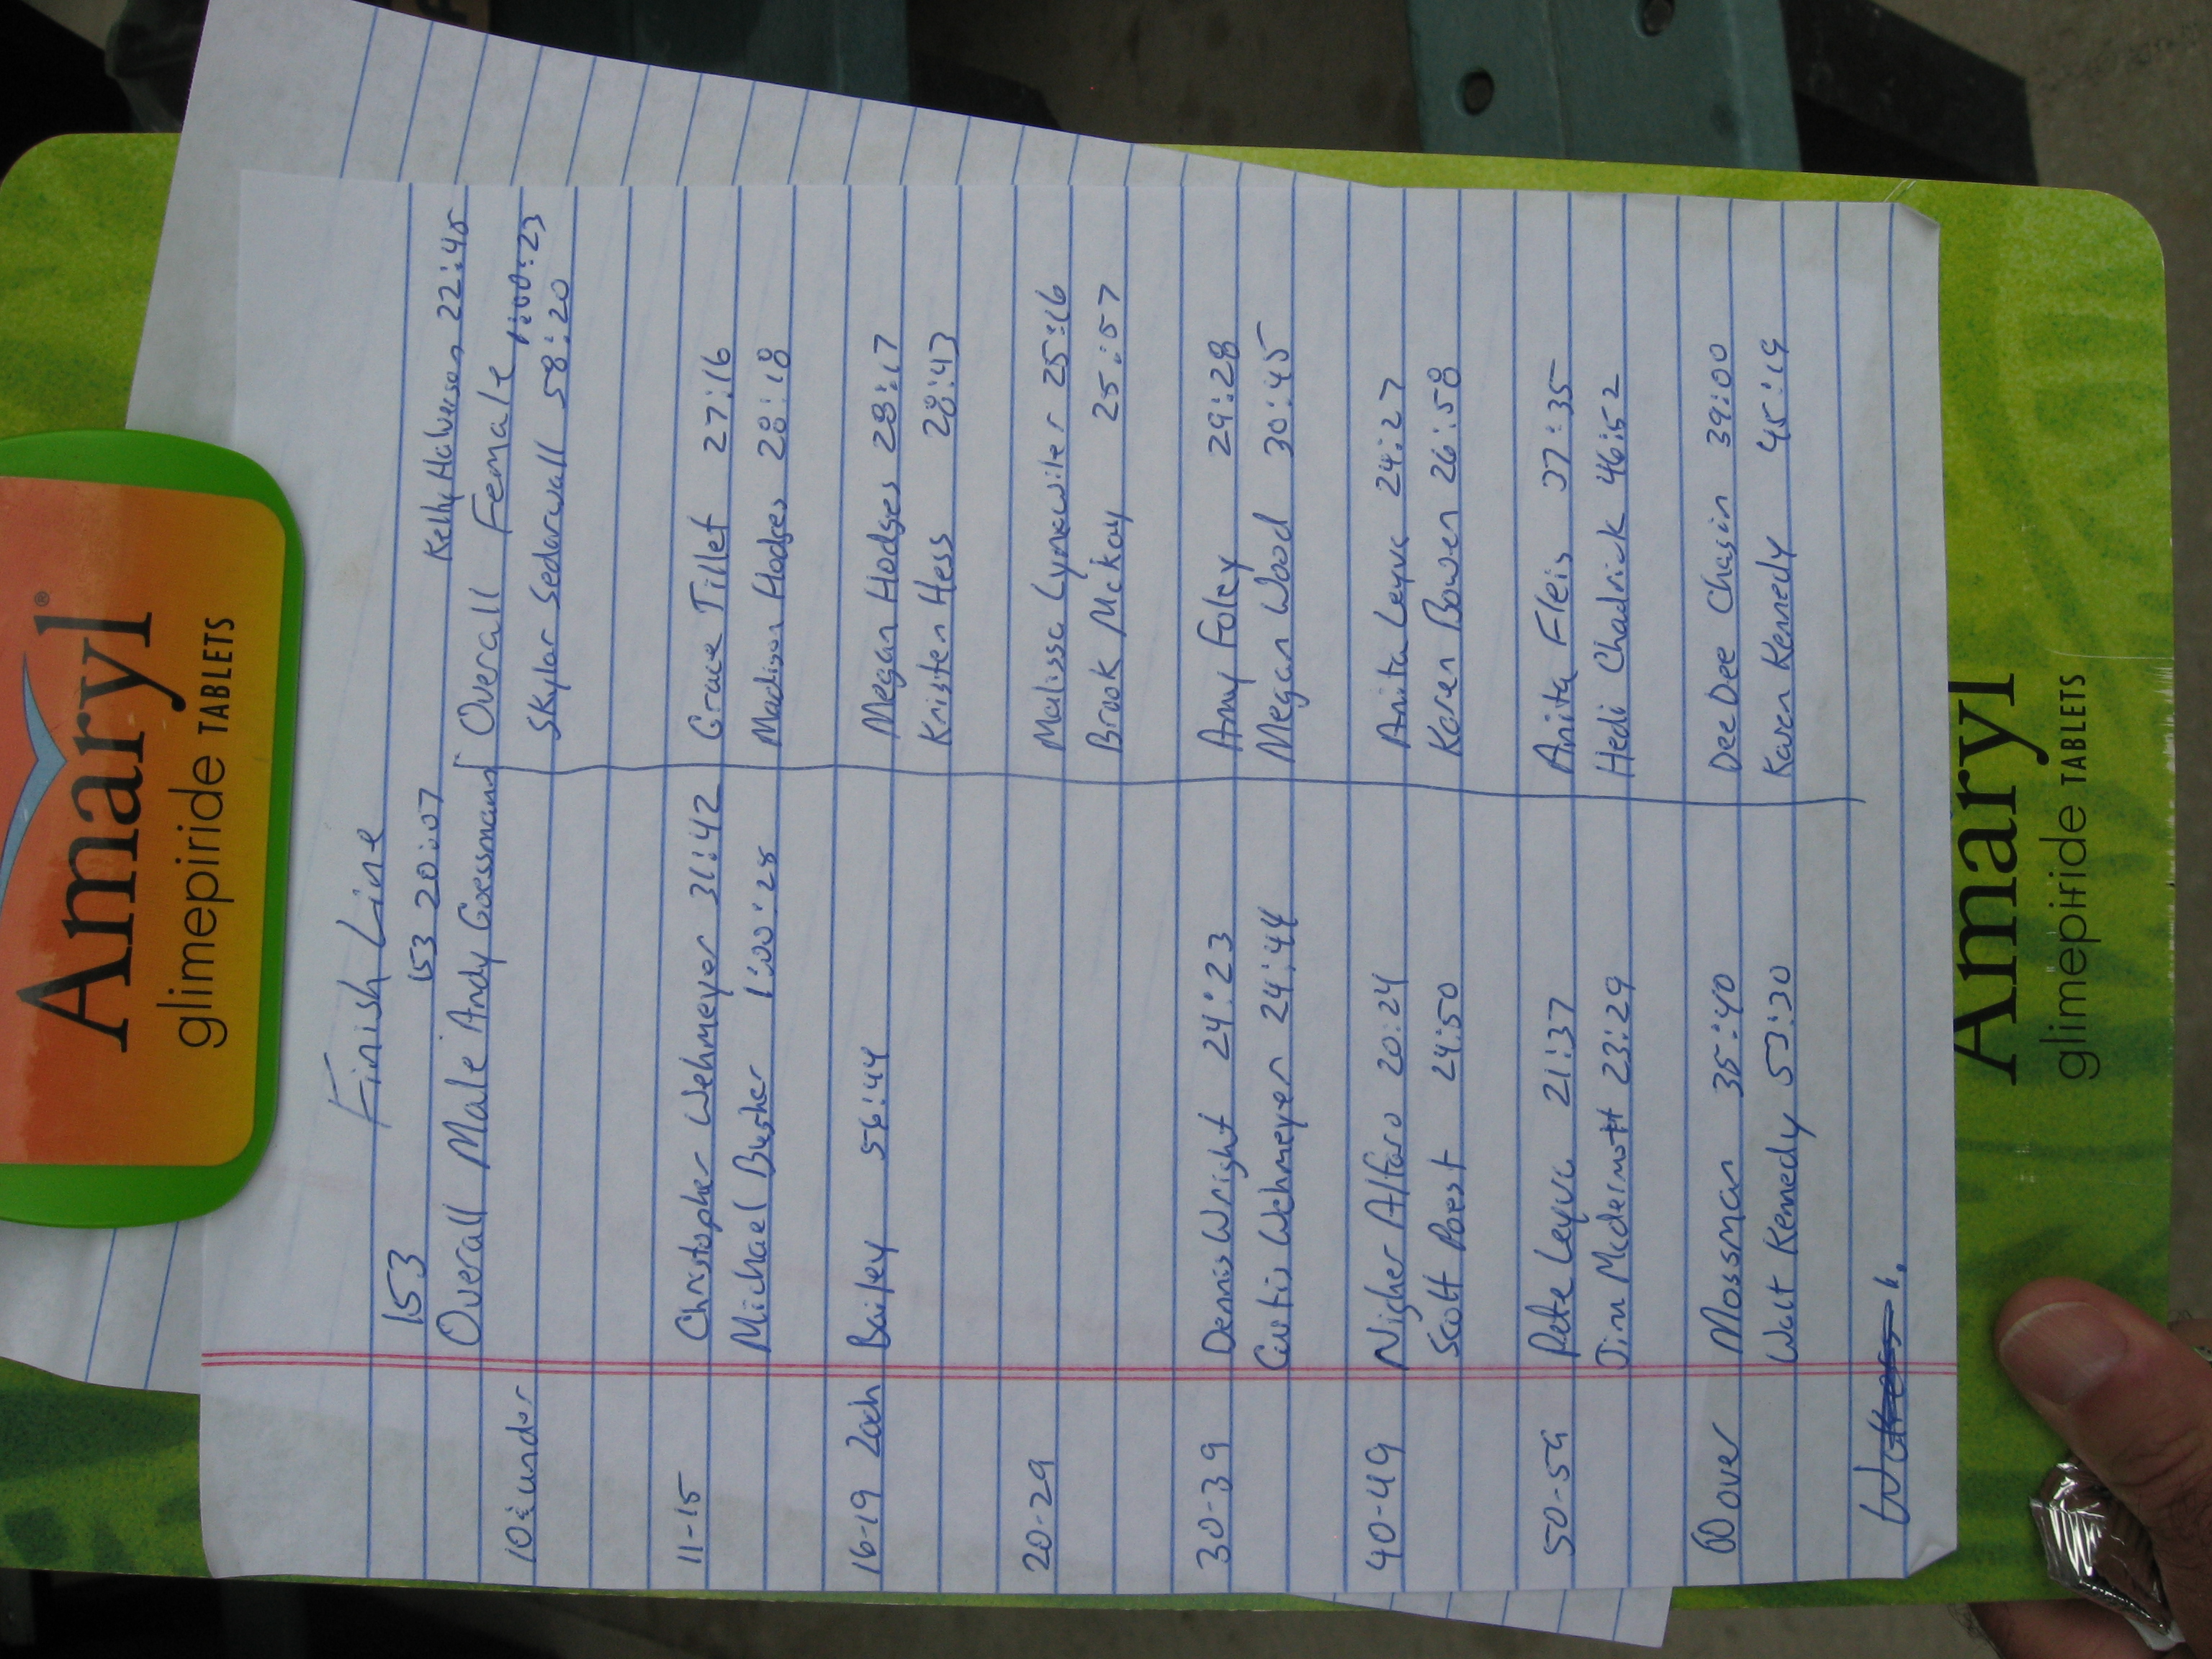 Amaryl®
glimepiride TABLETS
Finish Line
153 153 20:07 Kelly Halverson 22:45
Overall Male Andy Goessmann Overall Female
10 & under 1:00:23
Skylar Sedarwall 58:20
11-15 Christopher Wehmeyer 31:42 Grace Tillet 27:16
Michael Busher 1:00:28 Madison Hodges 28:18
16-19 Zach Baifey 56:44 Megan Hodges 28:17
Kristen Hess 28:43
20-29 Malissa Lynawiler 25:16
Brook McKay 25:57
30-39 Dennis Wright 24:23 Amy Foley 29:28
Curtis Wehmeyer 24:44 Megan Wood 30:45
40-49 Nigher Alfaro 20:24 Anita Leyva 24:27
Scott Poest 24:50 Karen Bowen 26:58
50-59 Pete Leyva 21:37 Anita Fleis 37:35
Jim Mcdermott 23:29 Hedi Chadrick 46:52
60 over Mossman 35:40 Dee Dee Chasin 39:00
Walt Kennedy 53:30 Karen Kennedy 45:19
Amaryl
glimepiride TABLETS